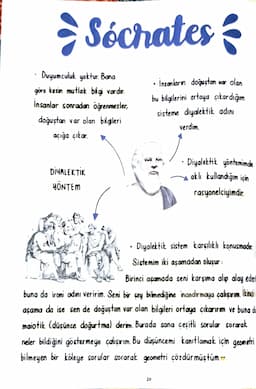 Sócrates
• Duyumculuk yoktur. Bana
göre kesin mutlak bilgi vardır.
İnsanlar sonradan öğrenmezler,
doğuştan var olan bilgileri
açığa çıkar.
• İnsanların doğuştan var olan
bu bilgilerini ortaya çıkardığım
sisteme diyalektik adını
verdim.
• Diyalektik yönteminde
aklı kullandığım için
rasyonelciyimdir.
DİYALEKTİK
YÖNTEM
• Diyalektik sistem karşılıklı konuşmadır.
Sistemim iki aşamadan oluşur.
Birinci aşamada seni karşıma alıp alay eder
buna da ironi adını veririm. Seni bir şey bilmediğine inandırmaya çalışırım. İkinci
aşama da ise sen de doğuştan var olan bilgileri ortaya çıkarırım ve buna da
maiotik (düşünce doğurtma) derim. Burada sana çeşitli sorular sorarak
neler bildiğini göstermeye çalışırım. Bu düşüncemi kanıtlamak için geometri
bilmeyen bir köleye sorular sorarak geometri çözdürmüştüm